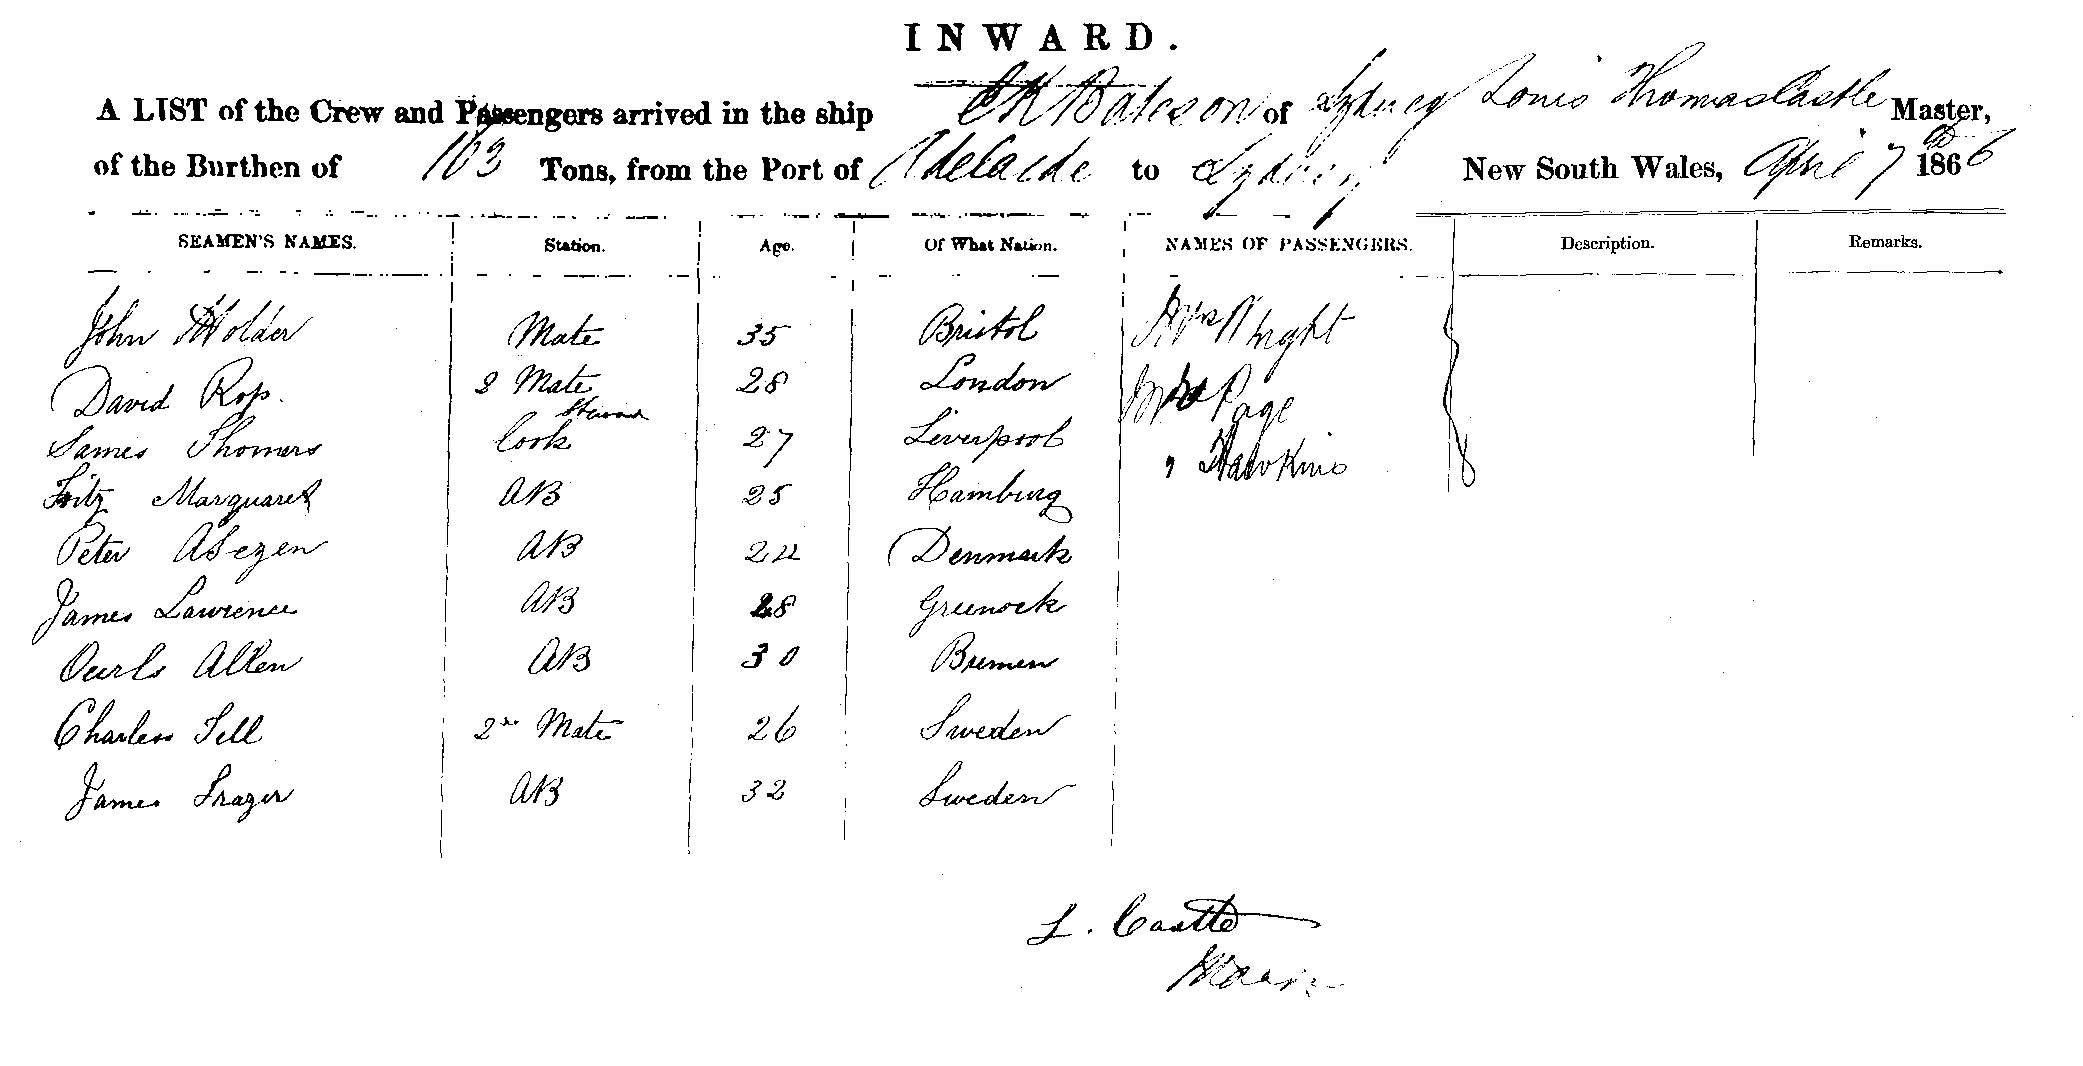 INWARD.
A LIST of the Crew and Passengers arrived in the ship E K Bateson of Sydney Louis Thomas Castle Master,
of the Burthen of 163 Tons, from the Port of Adelaide to Sydney New South Wales, April 7th 1866
SEAMEN'S NAMES. Station. Age. Of What Nation. NAMES OF PASSENGERS. Description. Remarks.
John Holder Mate 35 Bristol Mrs Wright
David Ross 2 Mate 28 London Mrs Page
James Thomers Cook Steward 27 Liverpool " Hawkins
Fritz Marquaret AB 25 Hamburg
Peter AB 24 Denmark
James Lawrence AB 28 Greenock
Allen AB 30 Bremen
Charless Tell 2nd Mate 26 Sweden
James Frazer AB 32 Sweden
L. Castle